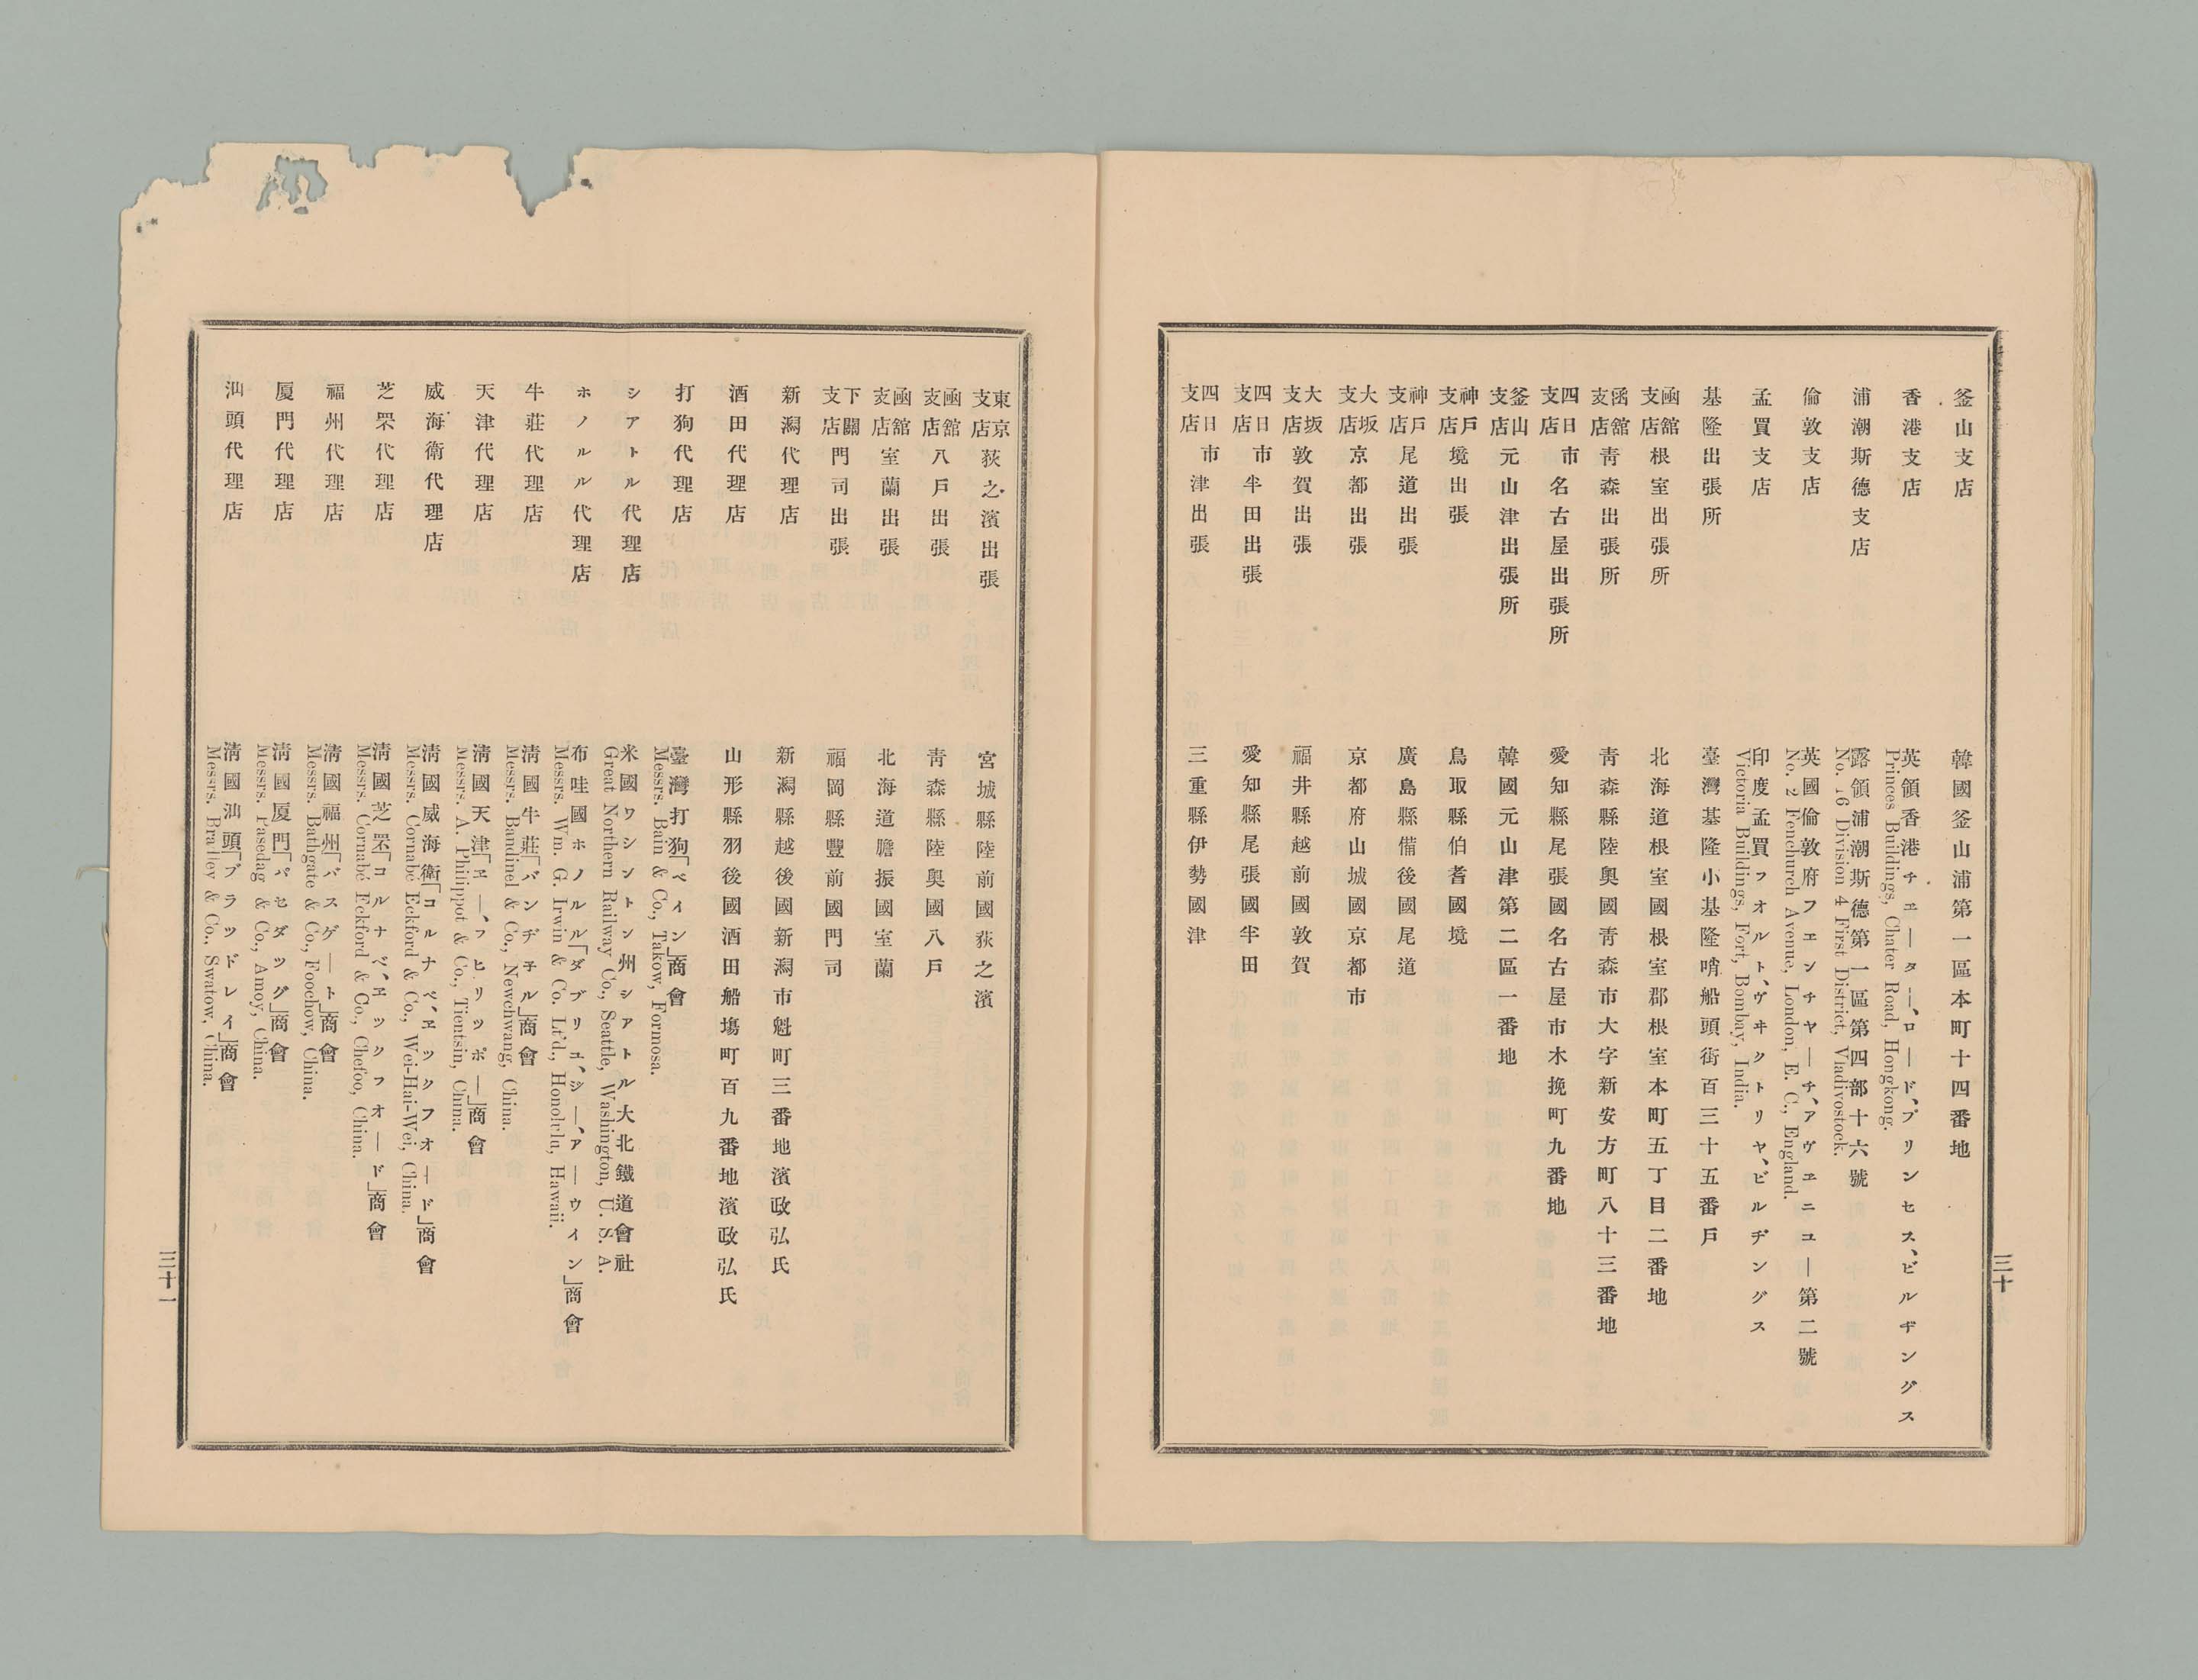 釜山支店　韓國釜山浦第一區本町十四番地
香港支店　英領香港チエーター、ロード、プリンセス、ビルヂングス
Princes Buildings, Chater Road, Hongkong.
浦潮斯德支店　露領浦潮斯德第一區第四部十六號
No. 16 Division 4 First District, Vladivostock.
倫敦支店　英國倫敦府フエンチヤーチ、アヴエニユー第二號
No. 2 Fenchurch Avenue, London, E. C., England.
孟買支店　印度孟買フオルト、ヴヰクトリヤ、ビルヂングス
Victoria Buildings, Fort, Bombay, India.
基隆出張所　臺灣基隆小基隆哨船頭街百三十五番戶
函館支店根室出張所　北海道根室國根室郡根室本町五丁目二番地
函館支店青森出張所　青森縣陸奧國青森市大字新安方町八十三番地
四日市支店名古屋出張所　愛知縣尾張國名古屋市木挽町九番地
釜山支店元山津出張所　韓國元山津第二區一番地
神戶支店境出張　鳥取縣伯耆國境
神戶支店尾道出張　廣島縣備後國尾道
大坂支店京都出張　京都府山城國京都市
大坂支店敦賀出張　福井縣越前國敦賀
四日市支店半田出張　愛知縣尾張國半田
四日市支店津出張　三重縣伊勢國津
三十
東京支店荻之濱出張　宮城縣陸前國荻之濱
函館支店八戶出張　青森縣陸奧國八戶
函館支店室蘭出張　北海道膽振國室蘭
下關支店門司出張　福岡縣豐前國門司
新潟代理店　新潟縣越後國新潟市魁町三番地濱政弘氏
酒田代理店　山形縣羽後國酒田船場町百九番地濱政弘氏
打狗代理店　臺灣打狗「ベイン」商會
Messrs. Bain & Co., Takow, Formosa.
シアトル代理店　米國ワシントン州シアトル大北鐵道會社
Great Northern Railway Co., Seattle, Washington, U. S. A.
ホノルル代理店　布哇國ホノルル「ダブリユ、ジー、アーウイン」商會
Messrs. Wm. G. Irwin & Co. Lt'd., Honolulu, Hawaii.
牛莊代理店　清國牛莊「バンヂネル」商會
Messrs. Bandinel & Co., Newchwang, China.
天津代理店　清國天津「エー、フヒリツポー」商會
Messrs. A. Philippot & Co., Tientsin, China.
威海衛代理店　清國威海衛「コルナベ、エツクフオード」商會
Messrs. Cornabé Eckford & Co., Wei-Hai-Wei, China.
芝罘代理店　清國芝罘「コルナベ、エツクフオード」商會
Messrs. Cornabé Eckford & Co., Chefoo, China.
福州代理店　清國福州「バスゲート」商會
Messrs. Bathgate & Co., Foochow, China.
厦門代理店　清國厦門「パセダツグ」商會
Messrs. Pasedag & Co., Amoy, China.
汕頭代理店　清國汕頭「ブラツドレイ」商會
Messrs. Bradley & Co., Swatow, China.
三十一